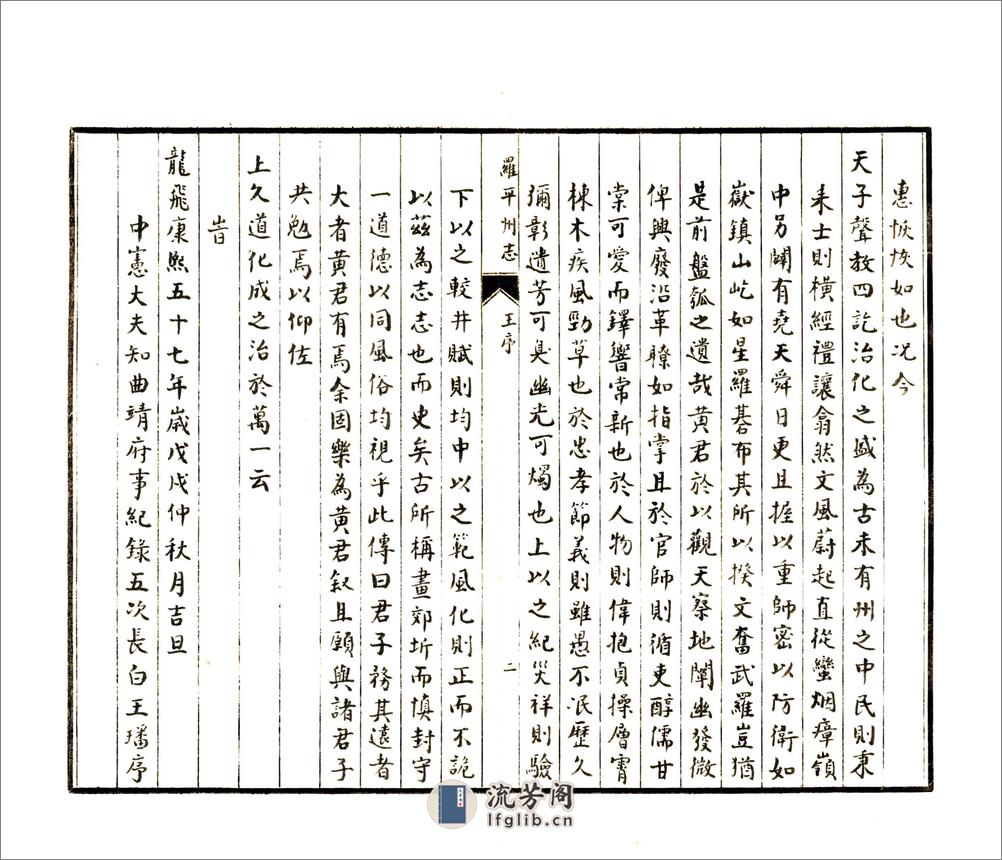 惠恢恢如也况今
天子聲教四訖治化之盛為古未有州之中民則秉
耒士則橫經禮讓翕然文風蔚起直從蠻烟瘴嶺
中另闢有堯天舜日更且握以重師密以防衛如
嶽鎮山屹如星羅碁布其所以揆文奮武羅豈猶
是前盤瓠之遺哉黃君於以觀天察地闡幽發微
俾興廢沿革瞭如指掌且於官師則循吏醇儒甘
棠可愛而鐸響常新也於人物則偉抱貞操層霄
棟木疾風勁草也於忠孝節義則雖愚不泯歷久
彌彰遺芳可臭幽光可燭也上以之紀災祥則驗
羅平州志 王序 二
下以之較井賦則均中以之範風化則正而不詭
以茲為志志也而史矣古所稱畫郊圻而慎封守
一道德以同風俗均視乎此傳曰君子務其遠者
大者黃君有焉余固樂為黃君叙且願與諸君子
共勉焉以仰佐
上久道化成之治於萬一云
旹
龍飛康熙五十七年歲戊戌仲秋月吉旦
中憲大夫知曲靖府事紀錄五次長白王璠序
流芳阁
lfglib.cn